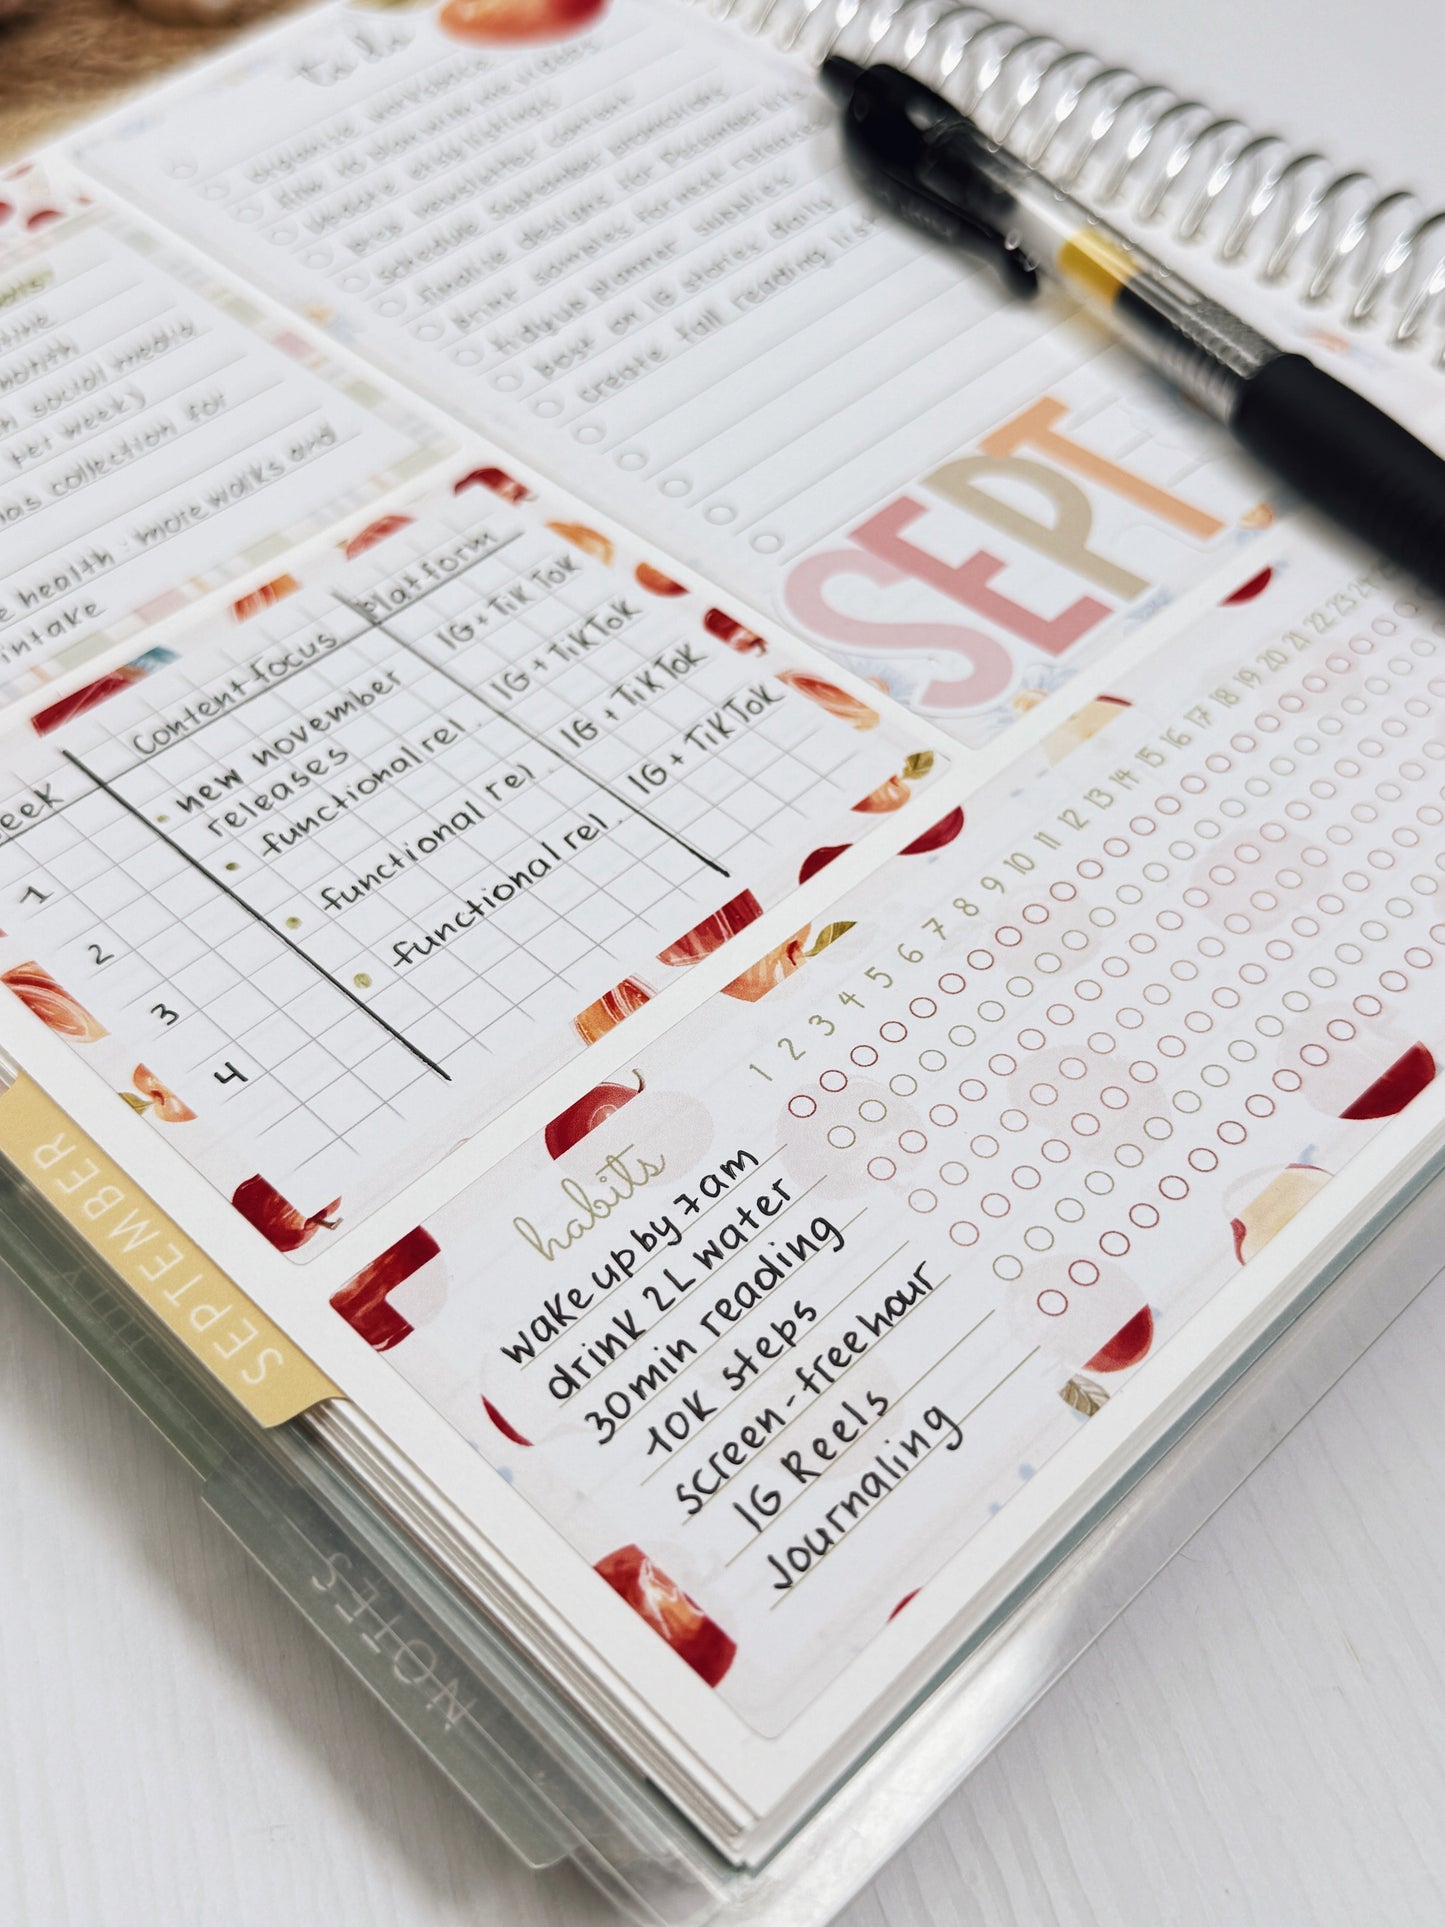 to do
organise workspace
update etsy listings
newsletter content
schedule September promotions
finalise designs for December
print samples for next release
tidy up planner supplies
post on IG stories daily
create fall reading list
social media
per week
collection for
health - more walks and
intake
SEPT
Content focus
Platform
1
new november
releases
IG + TikTok
2
functional rel.
IG + TikTok
3
functional rel.
IG + TikTok
4
functional rel.
IG + TikTok
1 2 3 4 5 6 7 8 9 10 11 12 13 14 15 16 17 18 19 20 21 22 23 24
habits
wake up by 7am
drink 2L water
30min reading
10K steps
screen-free hour
IG Reels
Journaling
SEPTEMBER
NOTES